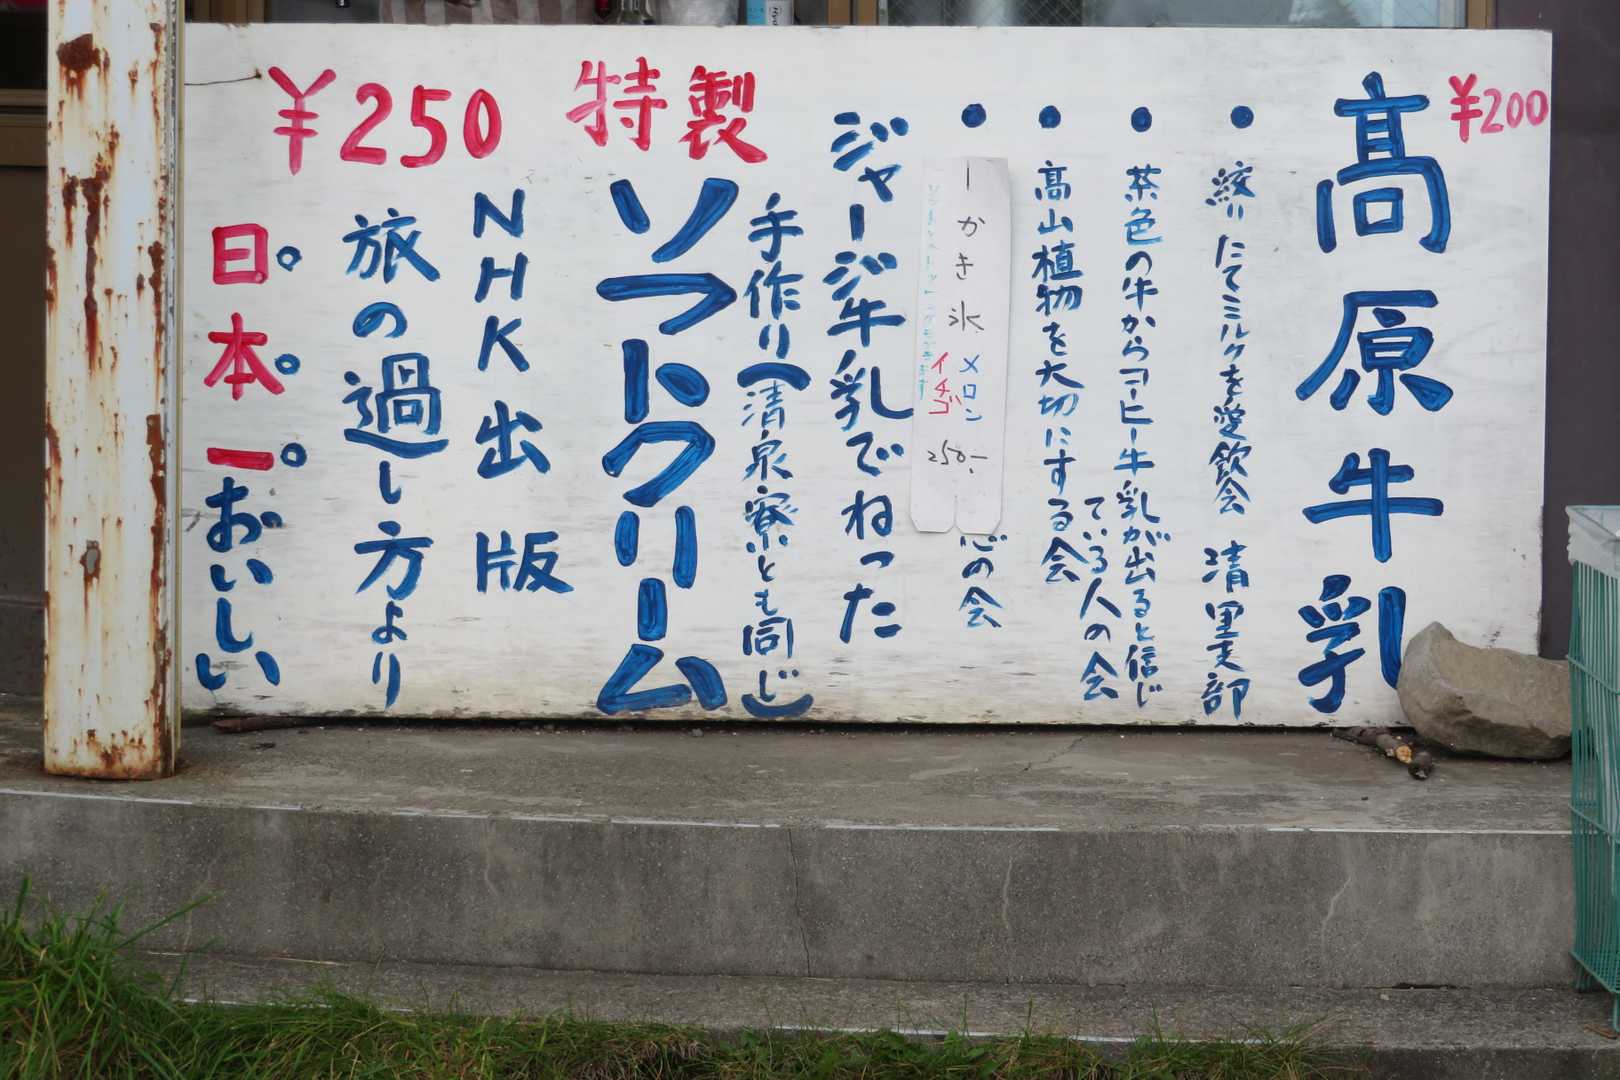 ¥200
高原牛乳
・絞りたてミルクを愛飲会 清里支部
・茶色の牛からコーヒー牛乳が出ると信じ
ている人の会
・高山植物を大切にする会
・
心の会
かき氷 メロン
イチゴ
250-
ジャージ牛乳でねった
手作り(清泉寮とも同じ)
特製
ソフトクリーム
¥250
NHK出版
旅の過し方より
日本一おいしい